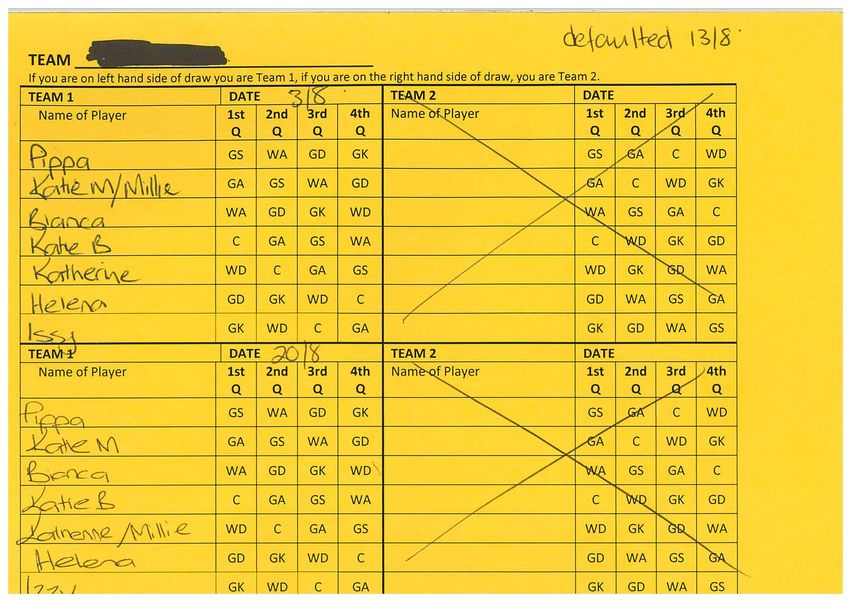 defaulted 13/8
TEAM
If you are on left hand side of draw you are Team 1, if you are on the right hand side of draw, you are Team 2.
TEAM 1 DATE 3/8 TEAM 2 DATE
Name of Player 1st Q 2nd Q 3rd Q 4th Q Name of Player 1st Q 2nd Q 3rd Q 4th Q
Pippa GS WA GD GK GS GA C WD
Katie M/Millie GA GS WA GD GA C WD GK
Bianca WA GD GK WD WA GS GA C
Katie B C GA GS WA C WD GK GD
Katherine WD C GA GS WD GK GD WA
Helena GD GK WD C GD WA GS GA
Issy GK WD C GA GK GD WA GS
TEAM 1 DATE 20/8 TEAM 2 DATE
Name of Player 1st Q 2nd Q 3rd Q 4th Q Name of Player 1st Q 2nd Q 3rd Q 4th Q
Pippa GS WA GD GK GS GA C WD
Katie M GA GS WA GD GA C WD GK
Bianca WA GD GK WD WA GS GA C
Katie B C GA GS WA C WD GK GD
Katherine/Millie WD C GA GS WD GK GD WA
Helena GD GK WD C GD WA GS GA
Izzy GK WD C GA GK GD WA GS